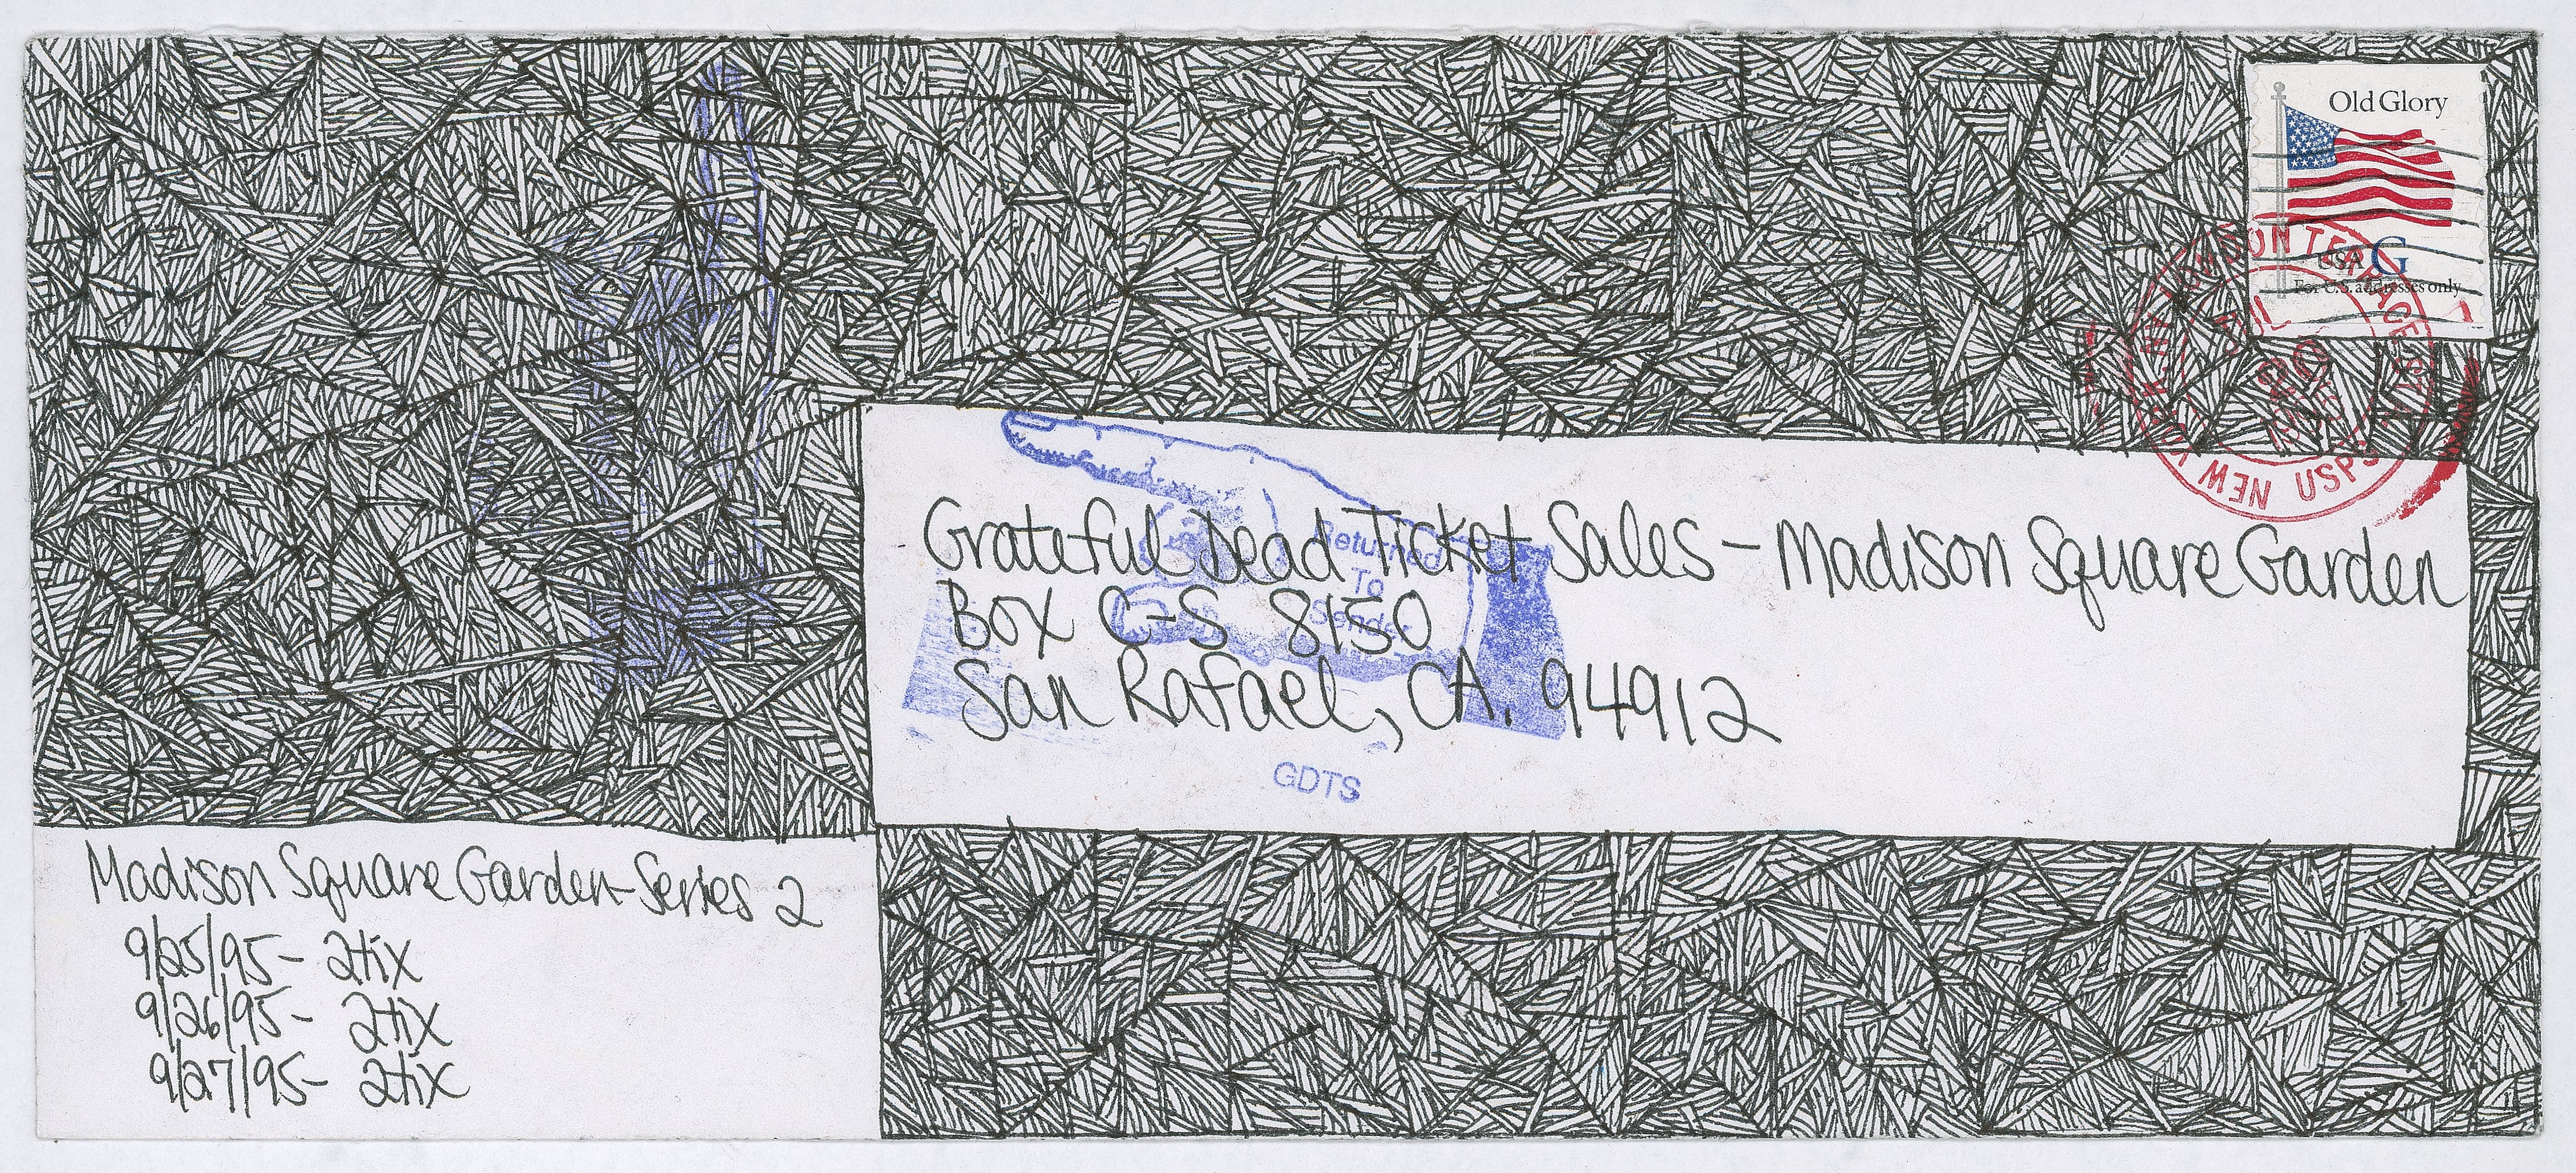 Old Glory
USA G
For U.S. addresses only
LONDON TERRACE STA
JUL
20
1995
NEW YORK, N.Y.
USPS
Returned
To
Sender
Grateful Dead Ticket Sales - Madison Square Garden
Box C-S 8150
San Rafael, CA. 94912
GDTS
Madison Square Garden-Series 2
9/25/95- 2tix
9/26/95- 2tix
9/27/95- 2tix